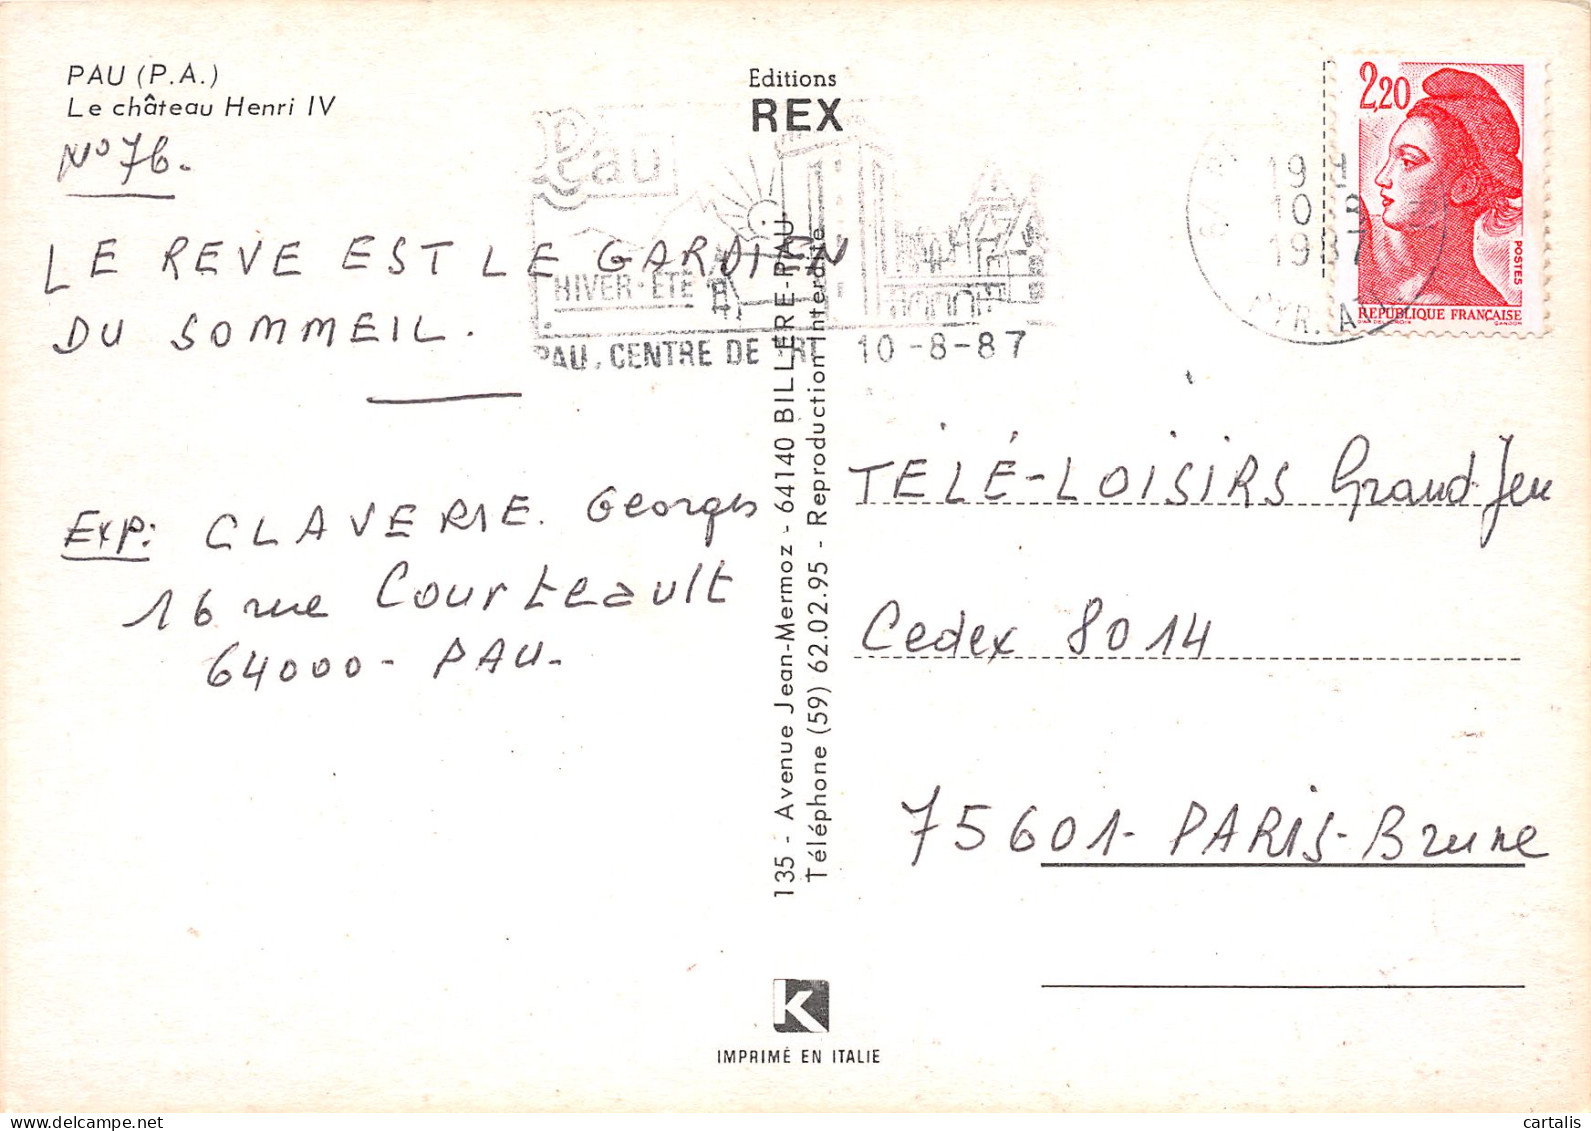 PAU (P.A.)
Le château Henri IV
N° 76.
LE REVE EST LE GARDIEN
DU SOMMEIL.
Exp: CLAVERIE. Georges
16 rue Courteault
64000 - PAU -
Editions
REX
Pau
HIVER-ÉTÉ
PAU, CENTRE DE
10-8-87
135 - Avenue Jean-Mermoz - 64140 BILLERE-PAU
Téléphone (59) 62.02.95 - Reproduction interdite
K
IMPRIMÉ EN ITALIE
19 H
10 8
1987
PYR. AT
2,20
POSTES
REPUBLIQUE FRANÇAISE
TÉLÉ-LOISIRS Grand Jeu
Cedex 8014
75601 - PARIS - Brune
cartalis